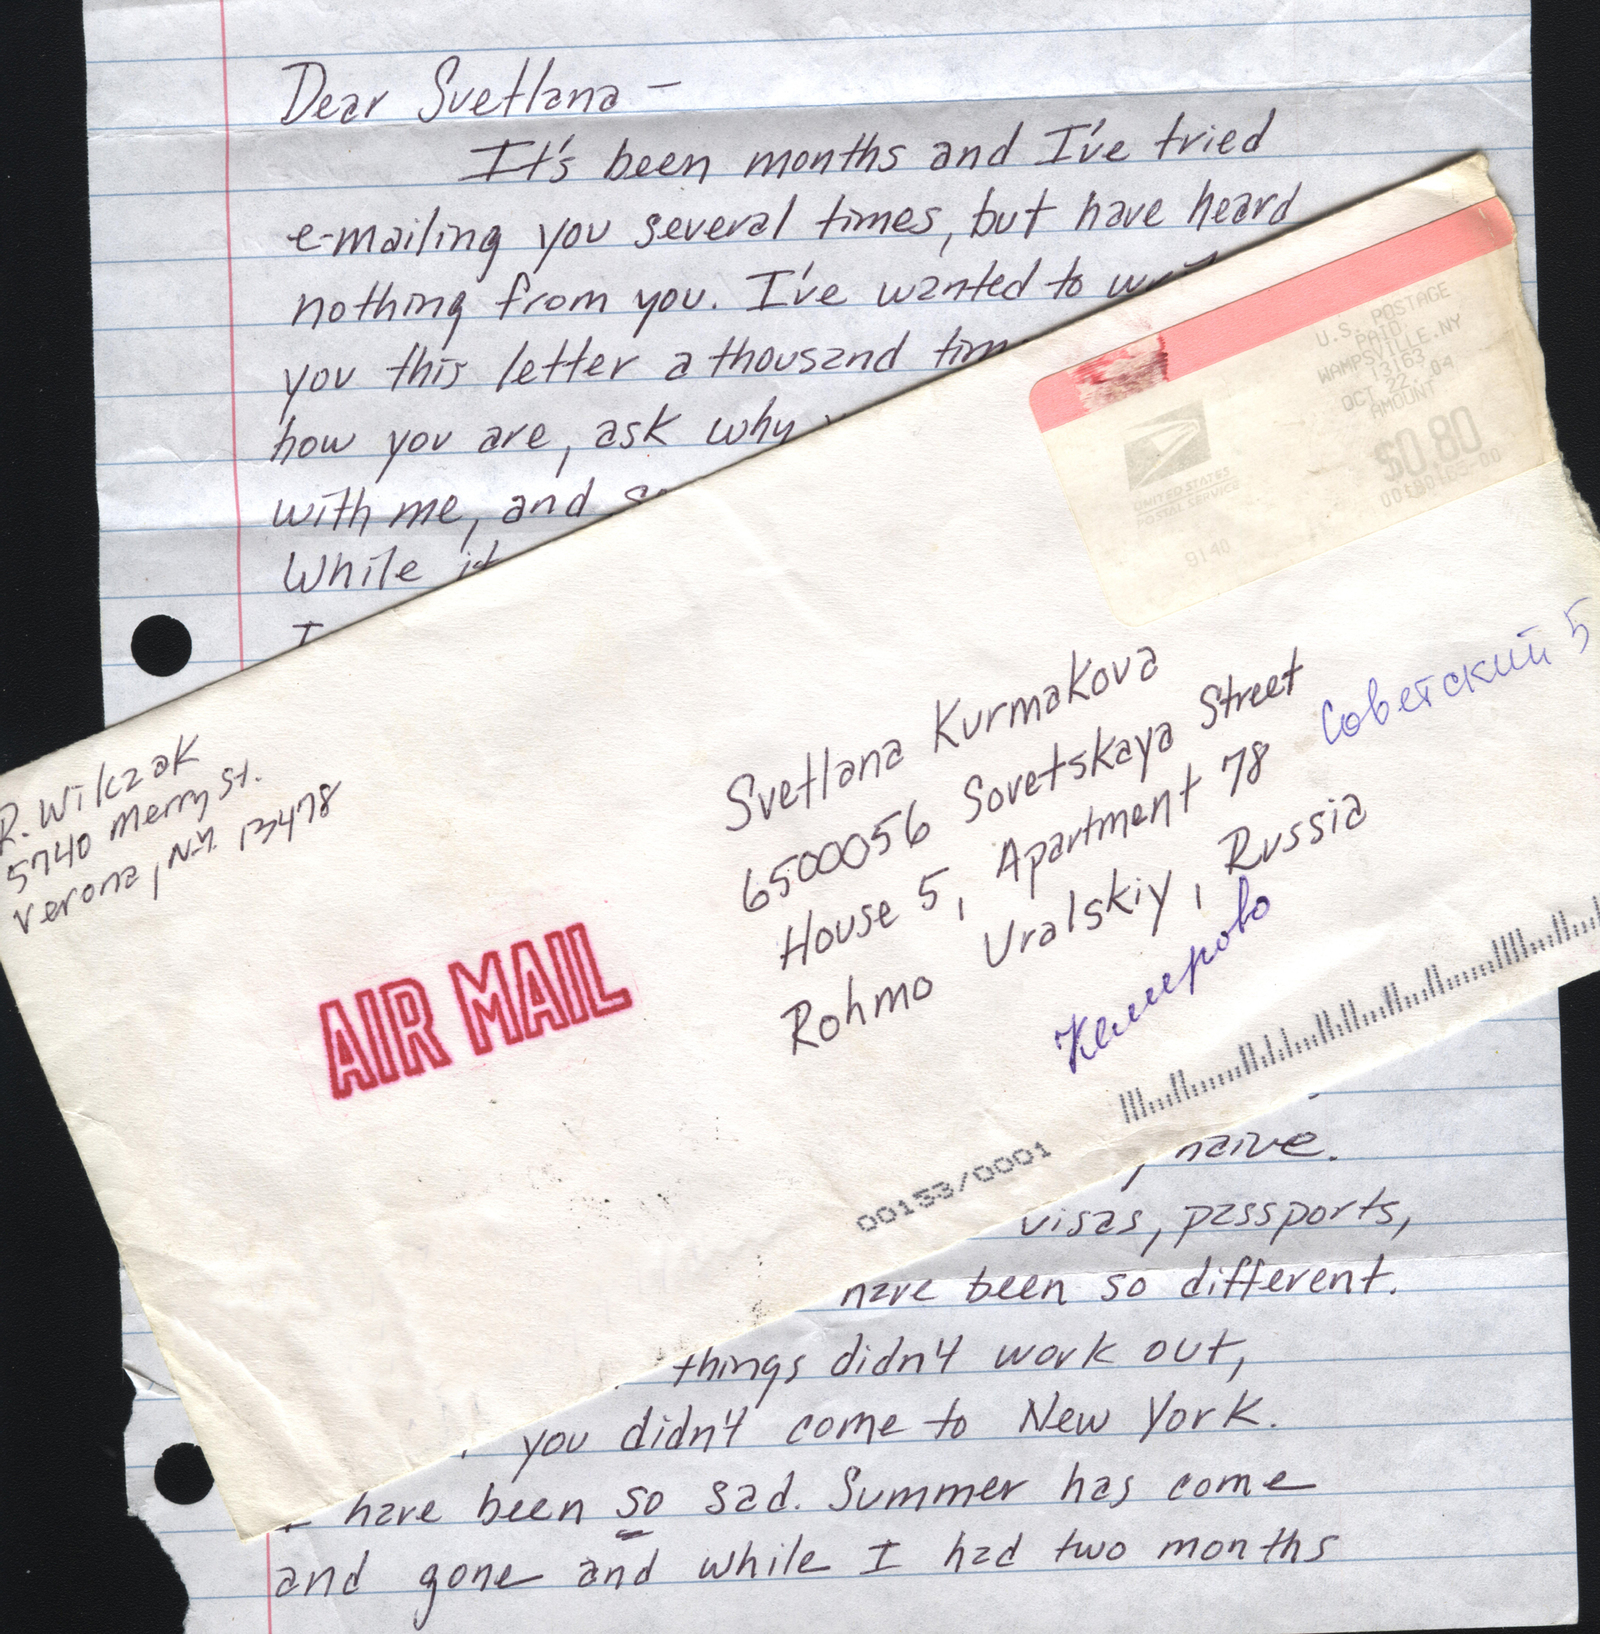 Dear Svetlana –
It's been months and I've tried
e-mailing you several times, but have heard
nothing from you. I've wanted to
you this letter a thousand
how you are, ask why
with me, and
While it
I
U.S. POSTAGE
PAID
WAMPSVILLE.NY
13163
OCT 22, 04
AMOUNT
$0.80
UNITED STATES
POSTAL SERVICE
9140
R. Wilczak
5740 Merry St.
Verona, N.Y. 13478
Svetlana Kurmakova
6500056 Sovetskaya Street
Советский 5
House 5, Apartment 78
Rohmo Uralskiy, Russia
Кемерово
AIR MAIL
00153/0001
naive.
visas, passports,
have been so different.
things didn't work out,
you didn't come to New York.
I have been so sad. Summer has come
and gone and while I had two months